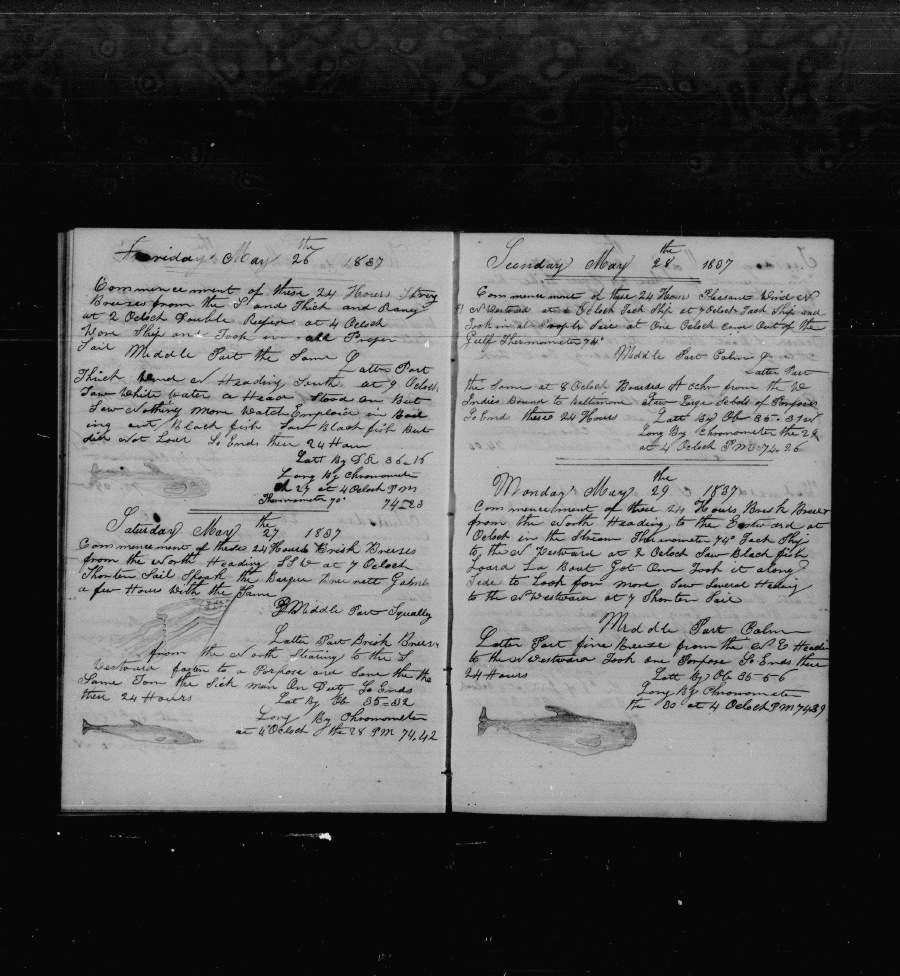 Friday May 26 the 1837
Commencement of these 24 Hours Strong
Breezes from the S and Thick and Raney
at 2 Oclock Double Reefen at 4 Oclock
Wore Ship and Took in all Proper
Sail Middle Part the Same
Latter Part
Thick Wend N Heading South at 9 Oclock
Saw White Water a Head Stood On But
Saw Nothing More Watch Emploie in Boil
ing out Black fish Saw Black fish But
did Not Lour So Ends these 24 Hours
Latt By D R 36-16
Long By Chronometer
27 at 4 Oclock P M
Thermometer 70° 74=23
Saturday May 27 the 1837
Commencement of these 24 Hours Brisk Breezes
from the North Heading S S W at 7 Oclock
Shorten Sail Spoak the Barque Gabriel
a few Hours With the Same
Middle Part Squally
Latter Part Brisk Breezes
from the North Stearing to the S
Westward fasten to a Porpose and Save the the
Same Ton the Sick man On Duty So Ends
these 24 Hours Lat By Ob 35=32
Long By Chronometer
at 4 Oclock the 28 PM 74,42
Sunday May 28 the 1837
Commencement of these 24 Hours Pleasant Wind N
N Westward at 6 Oclock Tack Ship at 7 Oclock Tack Ship and
Took in all Proper Sail at One Oclock Came Out of the
Gulf Thermometer 74°
Middle Part Calm &
Latter Part
the Same at 8 Oclock Boarded A Schr from the W
Indies Bound to Saw Large Schols of Porpose
So End these 24 Hours Latt By Ob 35-31 N
Long By Chronometer the 29
at 4 Oclock P M 74,26
Monday May 29 the 1837
Commencement of these 24 Hours Brisk Breezes
from the North Heading to the Eastward at
Oclock in the Stream Thermometer 74° Tack Ship
to the N Westward at 2 Oclock Saw Black fish
Loard La Boat Got One Took it along
Side to Look for more Saw Several Heding
to the N Westward at 7 Shorten Sail
Middle Part Calm
Latter Part fine Breeze from the N E Heading
to the N Westward Took one Porpose So Ends these
24 Hours Latt By Ob 35-56
Long By Chronometer
the 30 at 4 Oclock P M 74,39